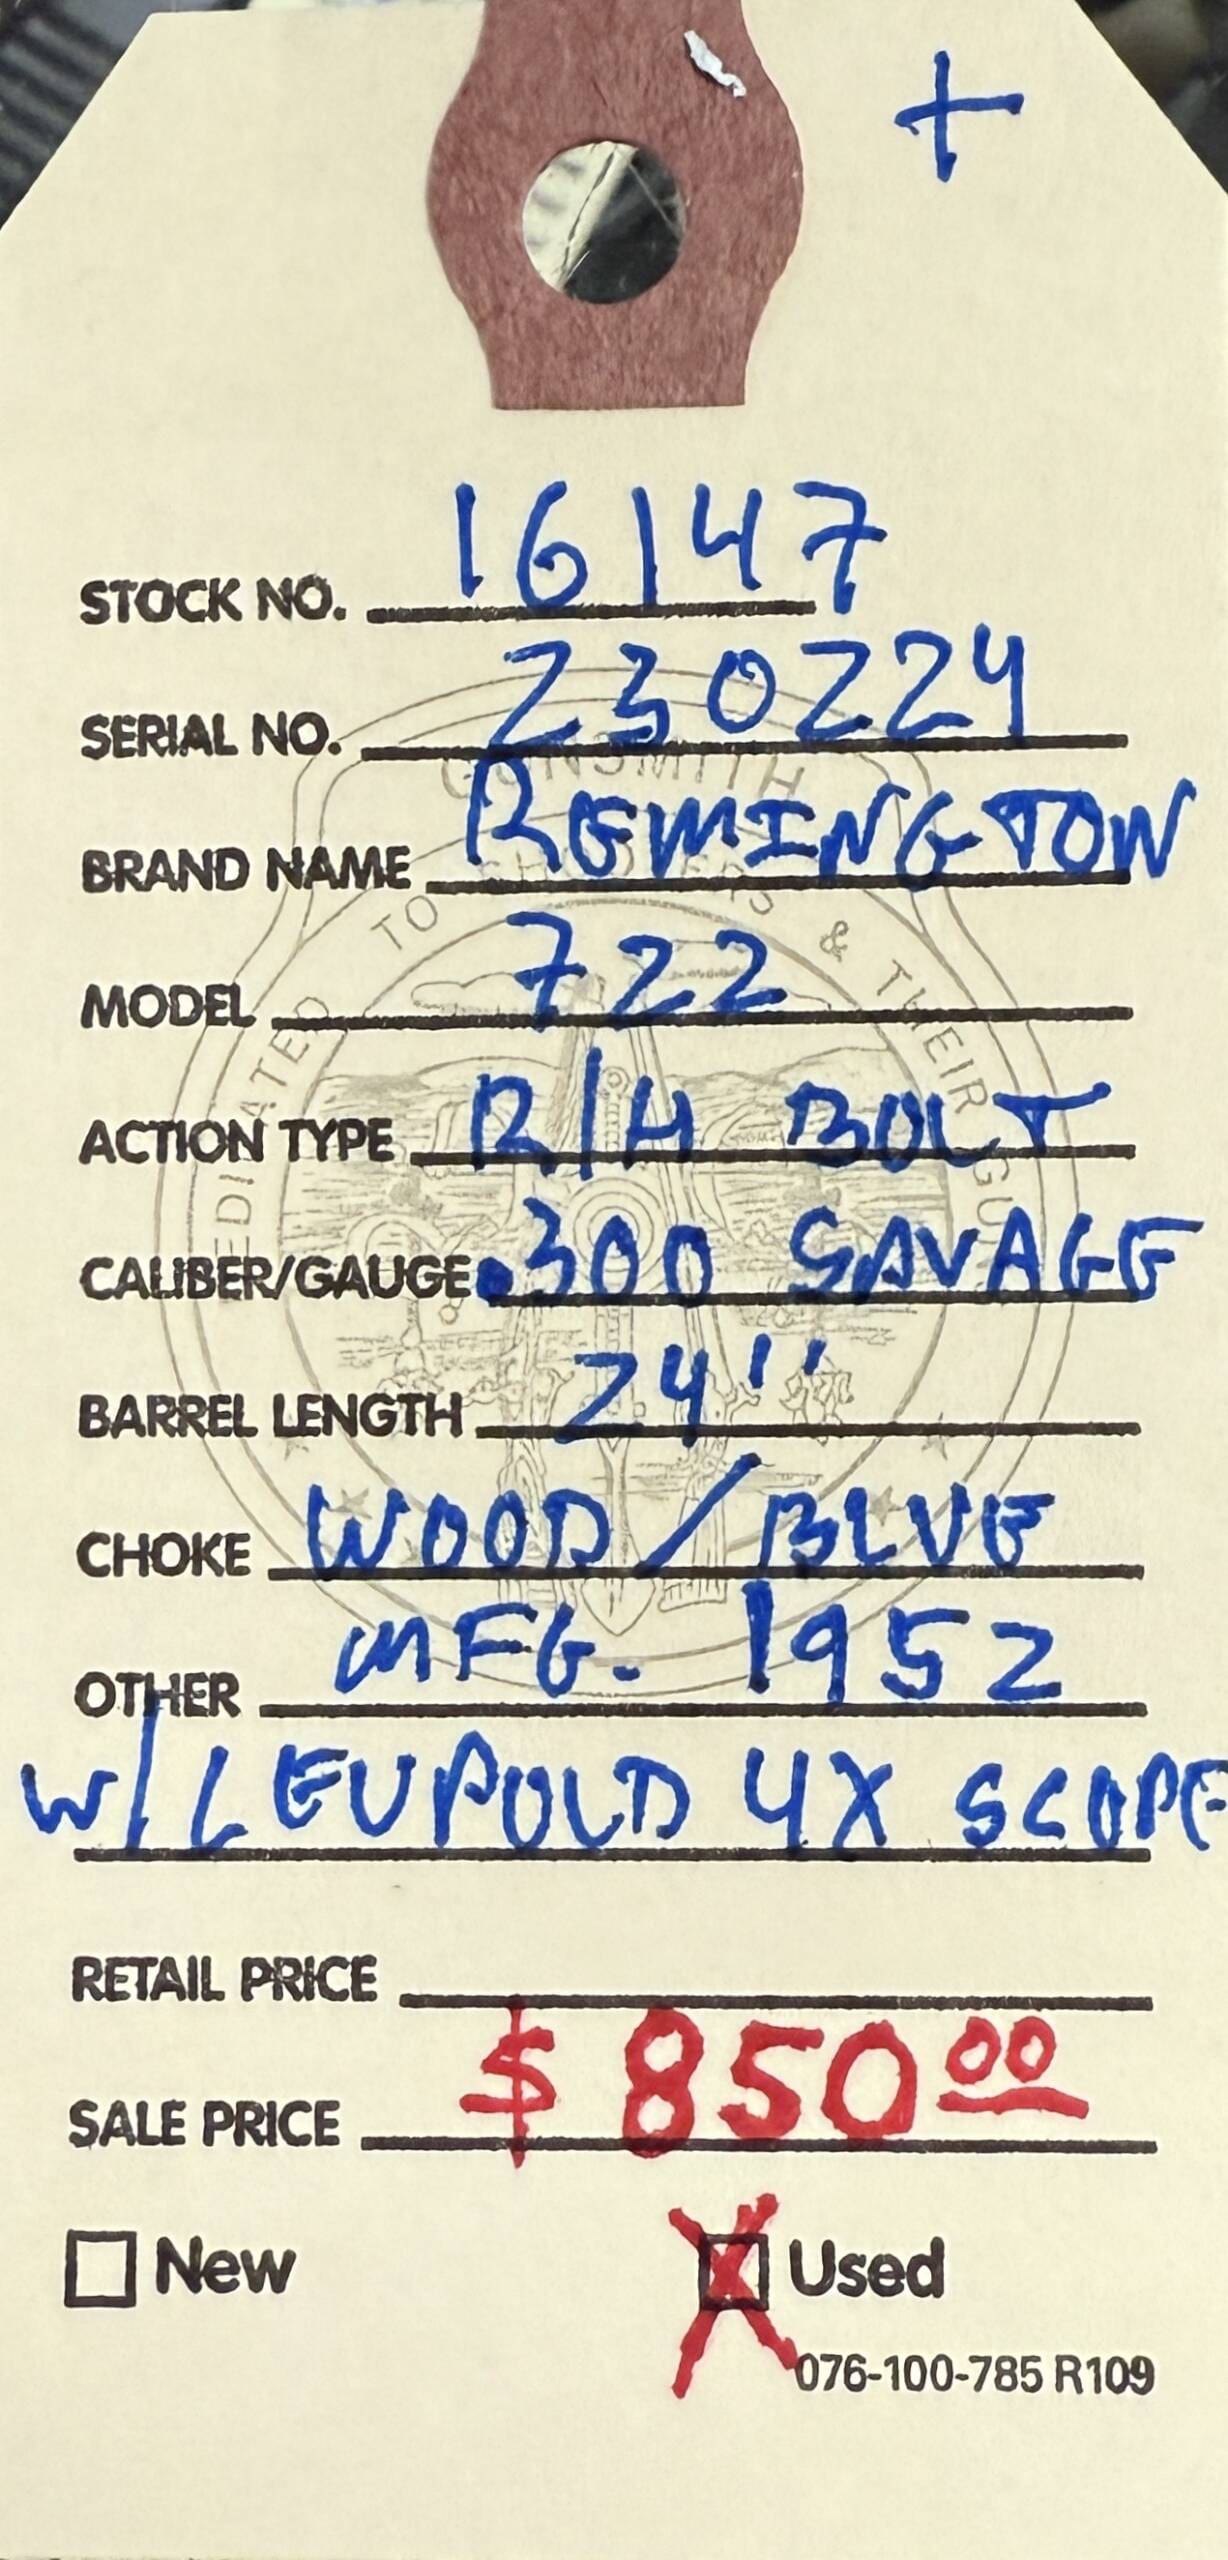 +
STOCK NO. 16147
SERIAL NO. 230224
GUNSMITH
BRAND NAME REMINGTON
DEDICATED TO SHOOTERS & THEIR GUNS
MODEL 722
ACTION TYPE R/H BOLT
CALIBER/GAUGE .300 SAVAGE
BARREL LENGTH 24''
CHOKE WOOD/BLUE
OTHER MFG. 1952
W/LEUPOLD 4X SCOPE
RETAIL PRICE
SALE PRICE $850.00
New
Used
076-100-785 R109